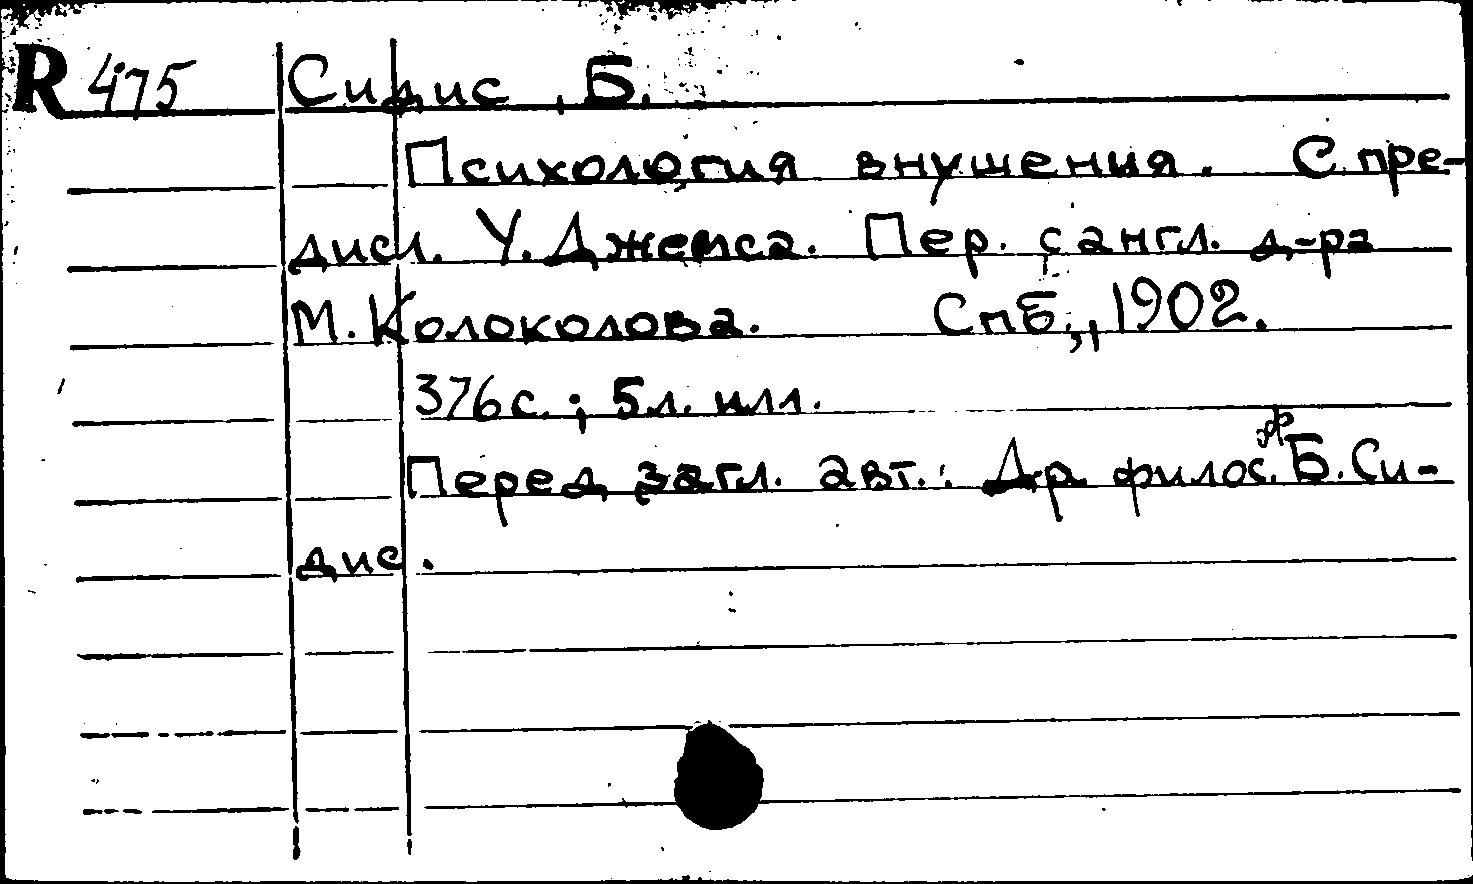 R 475 Сидис, Б.
Психология внушения. С пре-
дисл. У. Джемса. Пер. с англ. д-ра
М. Колоколова. Спб., 1902.
376 с.; 5 л. илл.
Перед загл. авт.: Д-р филос. Б. Си-
дис.